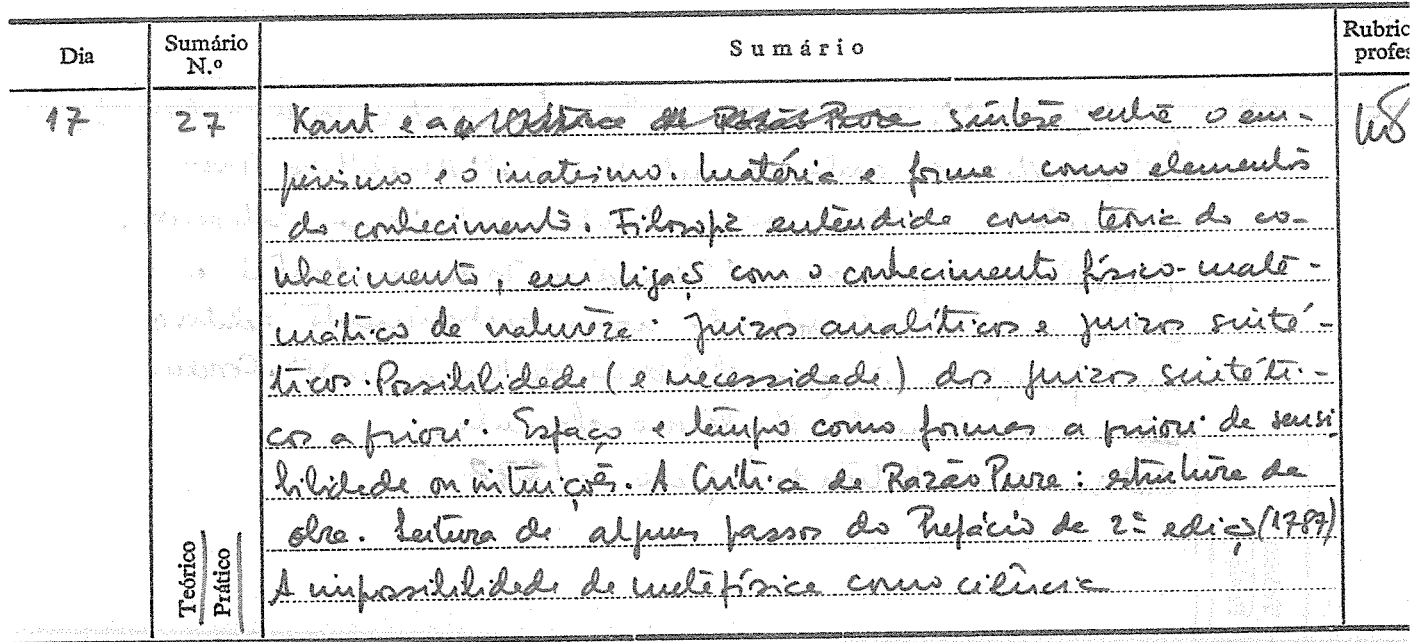 Dia
Sumário N.º
Sumário
Rubric
profes
17
27
Kant e a Crítica da Razão Pura síntese entre o em-
pirismo e o inatismo. Matéria e forma como elementos
do conhecimento. Filosofia entendida como teoria do co-
nhecimento, em ligação com o conhecimento físico-mate-
mático da natureza. Juizos analíticos e juizos sinté-
ticos. Possibilidade (e necessidade) dos juizos sintéti-
cos a priori. Espaço e tempo como formas a priori da sensi
bilidade ou intuições. A Crítica da Razão Pura: estrutura da
obra. Leitura de alguns passos do Prefácio da 2ª edição (1787)
A impossibilidade da metafísica como ciência
Teórico
Prático